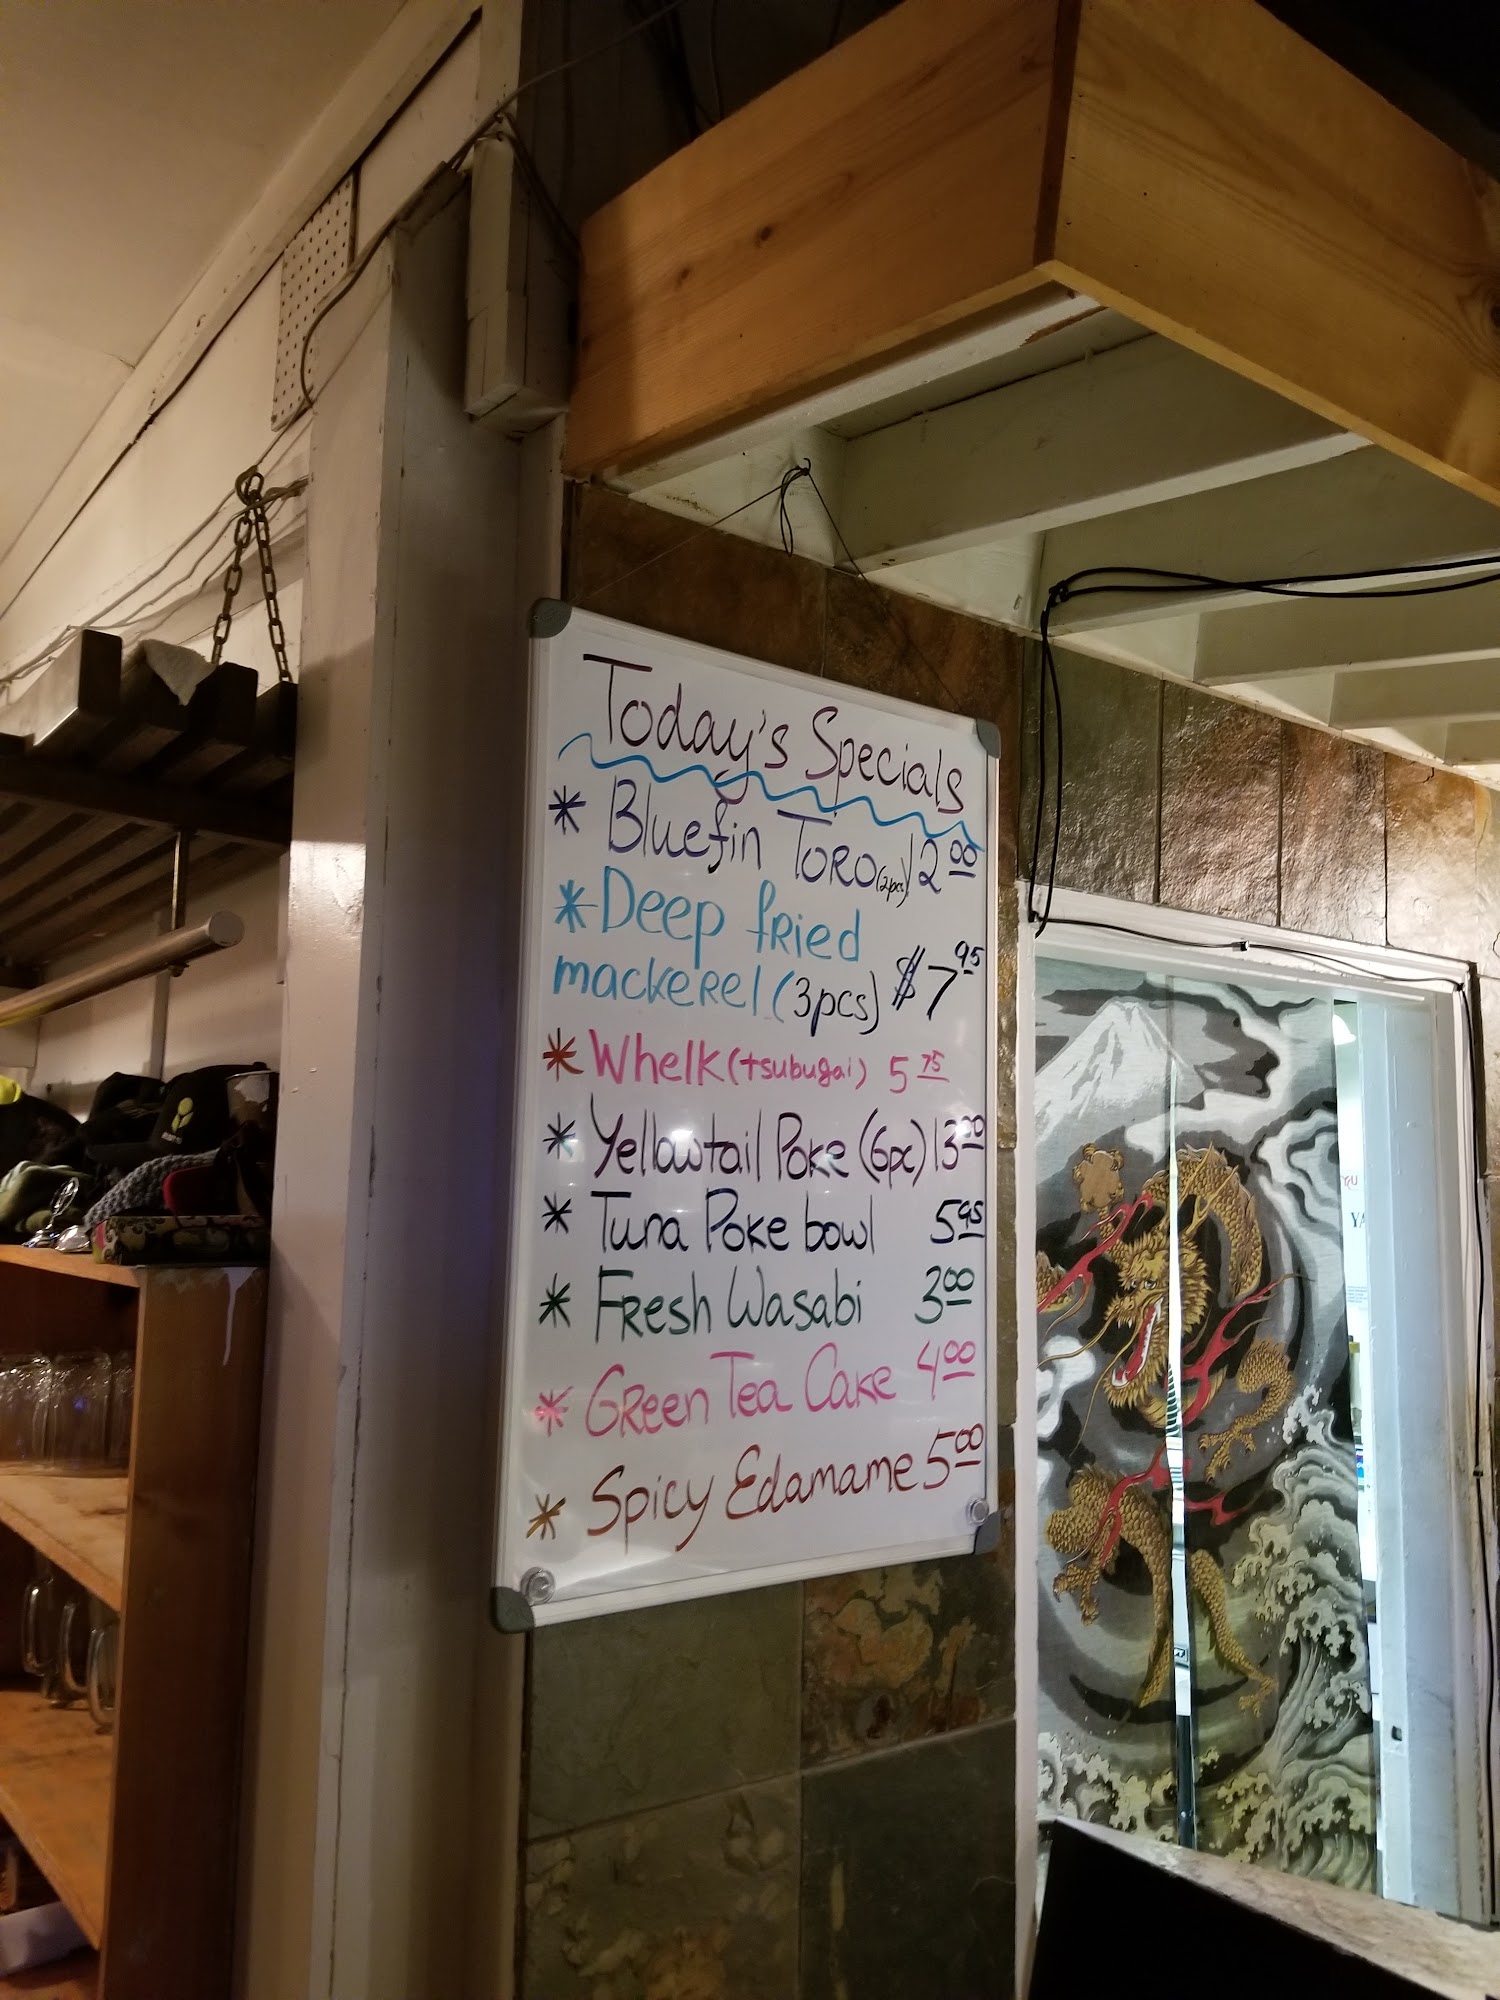 Today's Specials
* Bluefin Toro (2pcs) 12.00
* Deep fried
mackerel (3pcs) $7.95
* Whelk (tsubugai) 5.75
* Yellowtail Poke (6pc) 13.00
* Tuna Poke bowl 5.95
* Fresh Wasabi 3.00
* Green Tea Cake 4.00
* Spicy Edamame 5.00